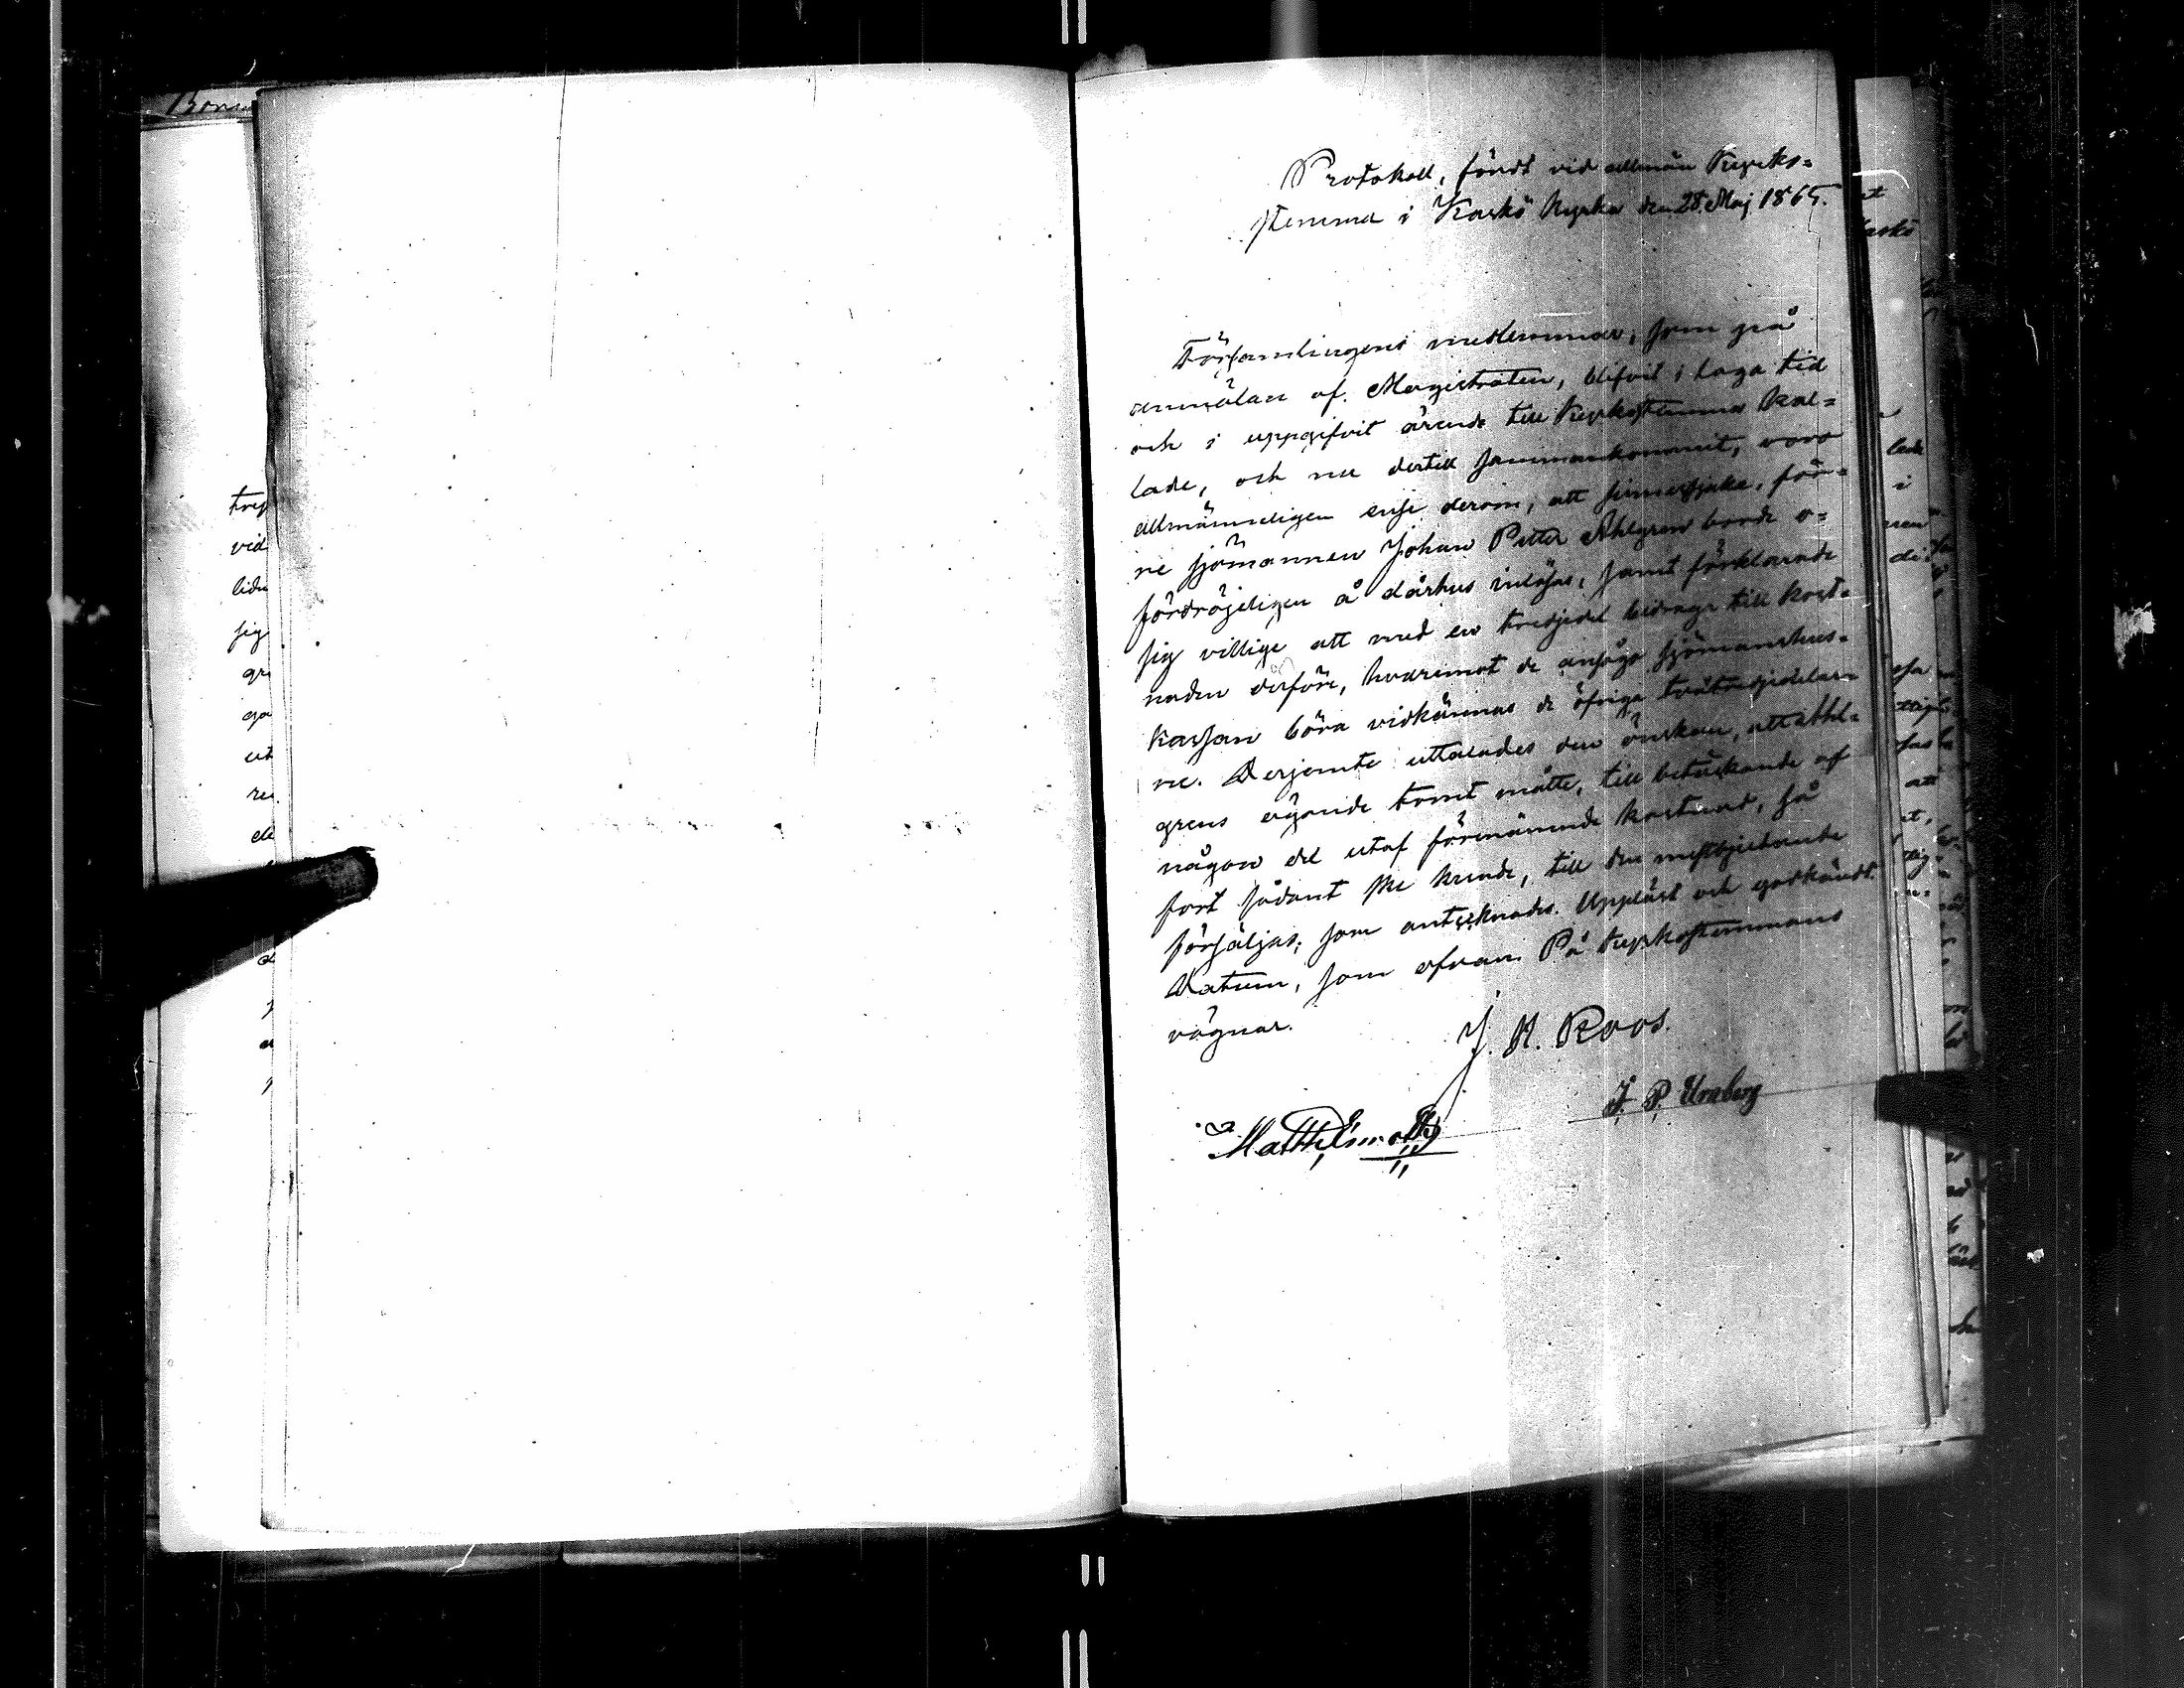 Protokoll, fördt vid allmän Kyrko=
stemma i Kaskö Kyrka den 28. Maj 1865.
Församlingens medlemmar, som på
anmälan af Magistraten, blifvit i laga tid
och i uppgifvit ärende till Kyrkostemma kal=
lade, och nu dertill sammankommit, voro
allmänneligen ense derom, att sinnessjuke, för=
re sjömannen Johan Petter Ahlgren borde o=
fördröjeligen å dårhus inlösas, samt förklarade
sig villige att med en tredjedel bidraga till kost=
naden derföre, hvaremot de ansågo sjömanshus=
kassan böra vidkännas de öfriga tvåtredjedelar=
ne. Derjemte uttalades den önskan, att Ahl=
grens egande tomt måtte, till betäckande af
någon del utaf förenämnde kostnad, så
fort sådant ske kunde, till den mestbjudande
försäljas; som antecknades. Uppläst och godkändt.
Datum, som ofvan. På Kyrkostemmans
vägnar.
J. H. Roos.
J. P. Uraberg
Matth
Bonu
tres
vid
lidu
sig
gr
ga
ut
re
de
at
askö
lade
i
nen
de
att
et,